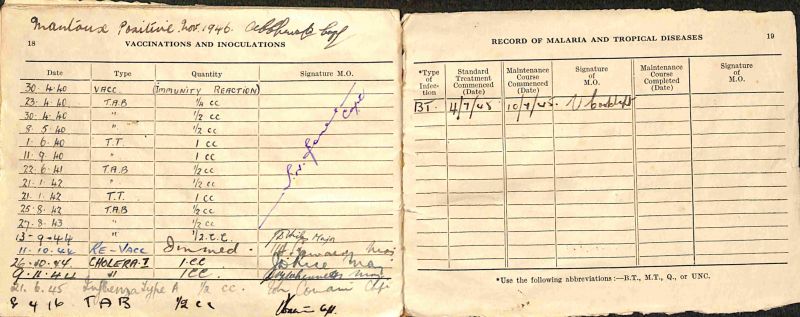 Mantoux Positive. Nov. 1946. Capt
18
VACCINATIONS AND INOCULATIONS
Date Type Quantity Signature M.O.
30.4.40 VACC (IMMUNITY REACTION)
23.4.40 T.A.B ¼ cc
30.4.40 " ½ cc
8.5.40 " ½ cc
1.6.40 T.T. 1 cc
11.9.40 " 1 cc
22.6.41 T.A.B ½ cc
21.1.42 " ½ cc
21.1.42 T.T. 1 cc
25.8.42 T.A.B ½ cc
27.8.43 " ½ cc
Capt
13-9-44 " 1/2 C.C. Major
11.10.44 RE-VACC Immed. Maj
26.10.44 CHOLERA-I 1.CC Maj
9.11.44 " 1 CC. Maj
21.6.45 Influenza Type A ½ cc. Capt
8 4 46 TAB ½ cc Capt.
RECORD OF MALARIA AND TROPICAL DISEASES
19
*Type of Infection
Standard Treatment Commenced (Date)
Maintenance Course Commenced (Date)
Signature of M.O.
Maintenance Course Completed (Date)
Signature of M.O.
BT. 4/7/45 10/7/45. Capt
*Use the following abbreviations :—B.T., M.T., Q., or UNC.